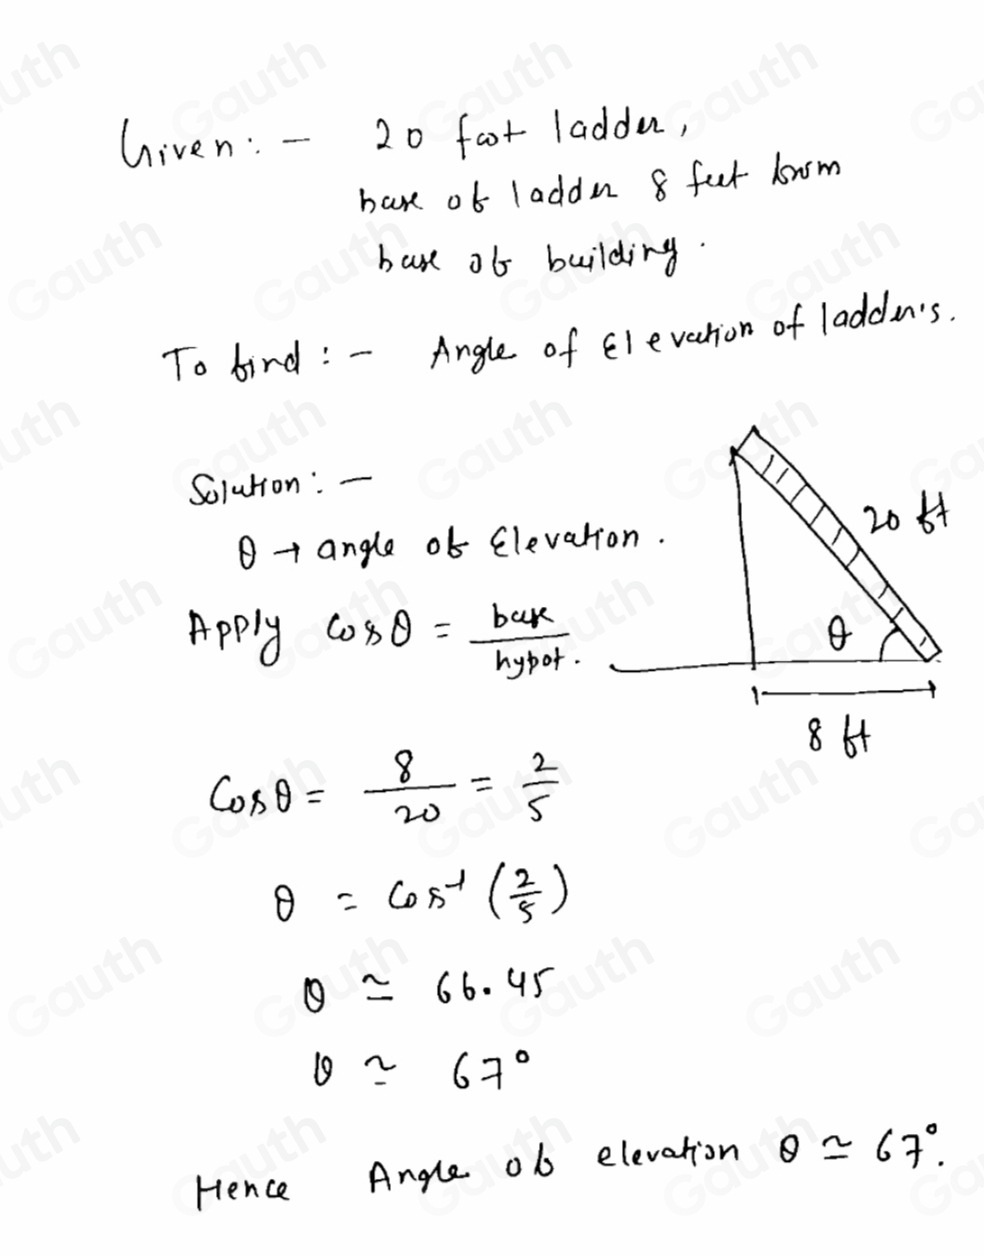 Given:- 20 foot ladder,
base of ladder 8 feet from
base of building.
To find:- Angle of Elevation of ladder's.
Solution:-
θ → angle of Elevation.
Apply Cosθ = base/hypot.
20 ft
θ
8 ft
Cosθ = 8/20 = 2/5
θ = Cos⁻¹(2/5)
θ ≃ 66.45
θ ≃ 67°
Hence Angle of elevation θ ≃ 67°.
Gauth